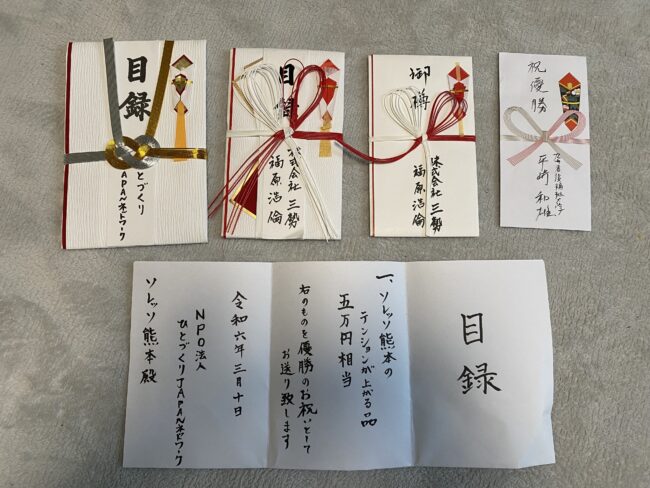 目録
ひとづくり
JAPANネットワーク
目録
株式会社 三勢
福原浩倫
御樽
株式会社 三勢
福原浩倫
祝優勝
平崎和雄
目録
一、ソレッソ熊本の
テンションが上がる品
五万円相当
右のものを優勝のお祝いとして
お送り致します
令和六年三月十日
NPO法人
ひとづくりJAPANネットワーク
ソレッソ熊本殿